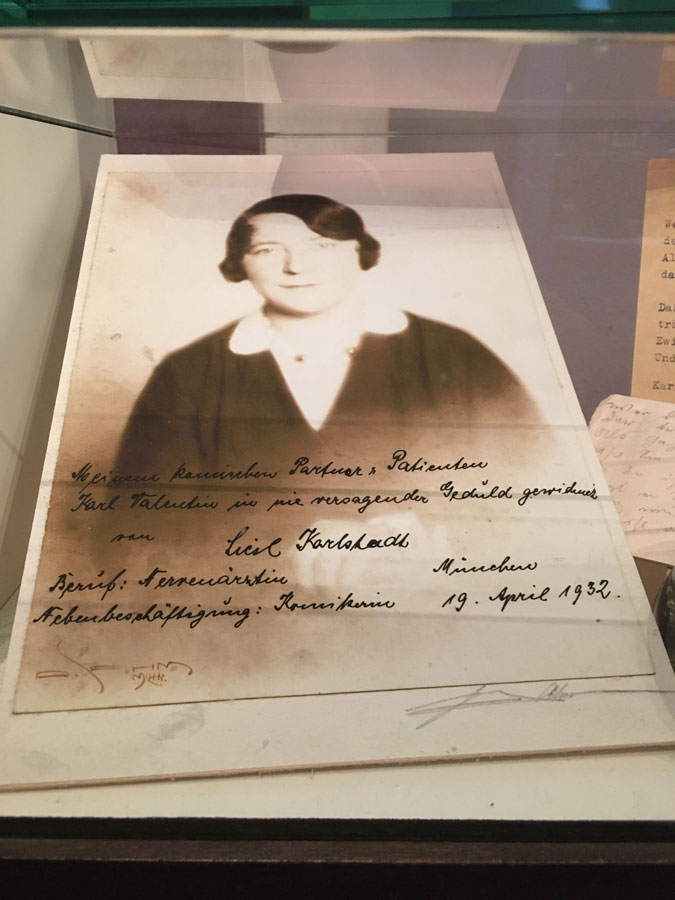 Meinem komischen Partner & Patienten
Karl Valentin in nie versagender Geduld gewidmet
von Liesl Karlstadt
Beruf: Nervenärztin München
Nebenbeschäftigung: Komikerin 19. April 1932.
We
de
Al
da
Da
trä
Ewi
Und
Kar